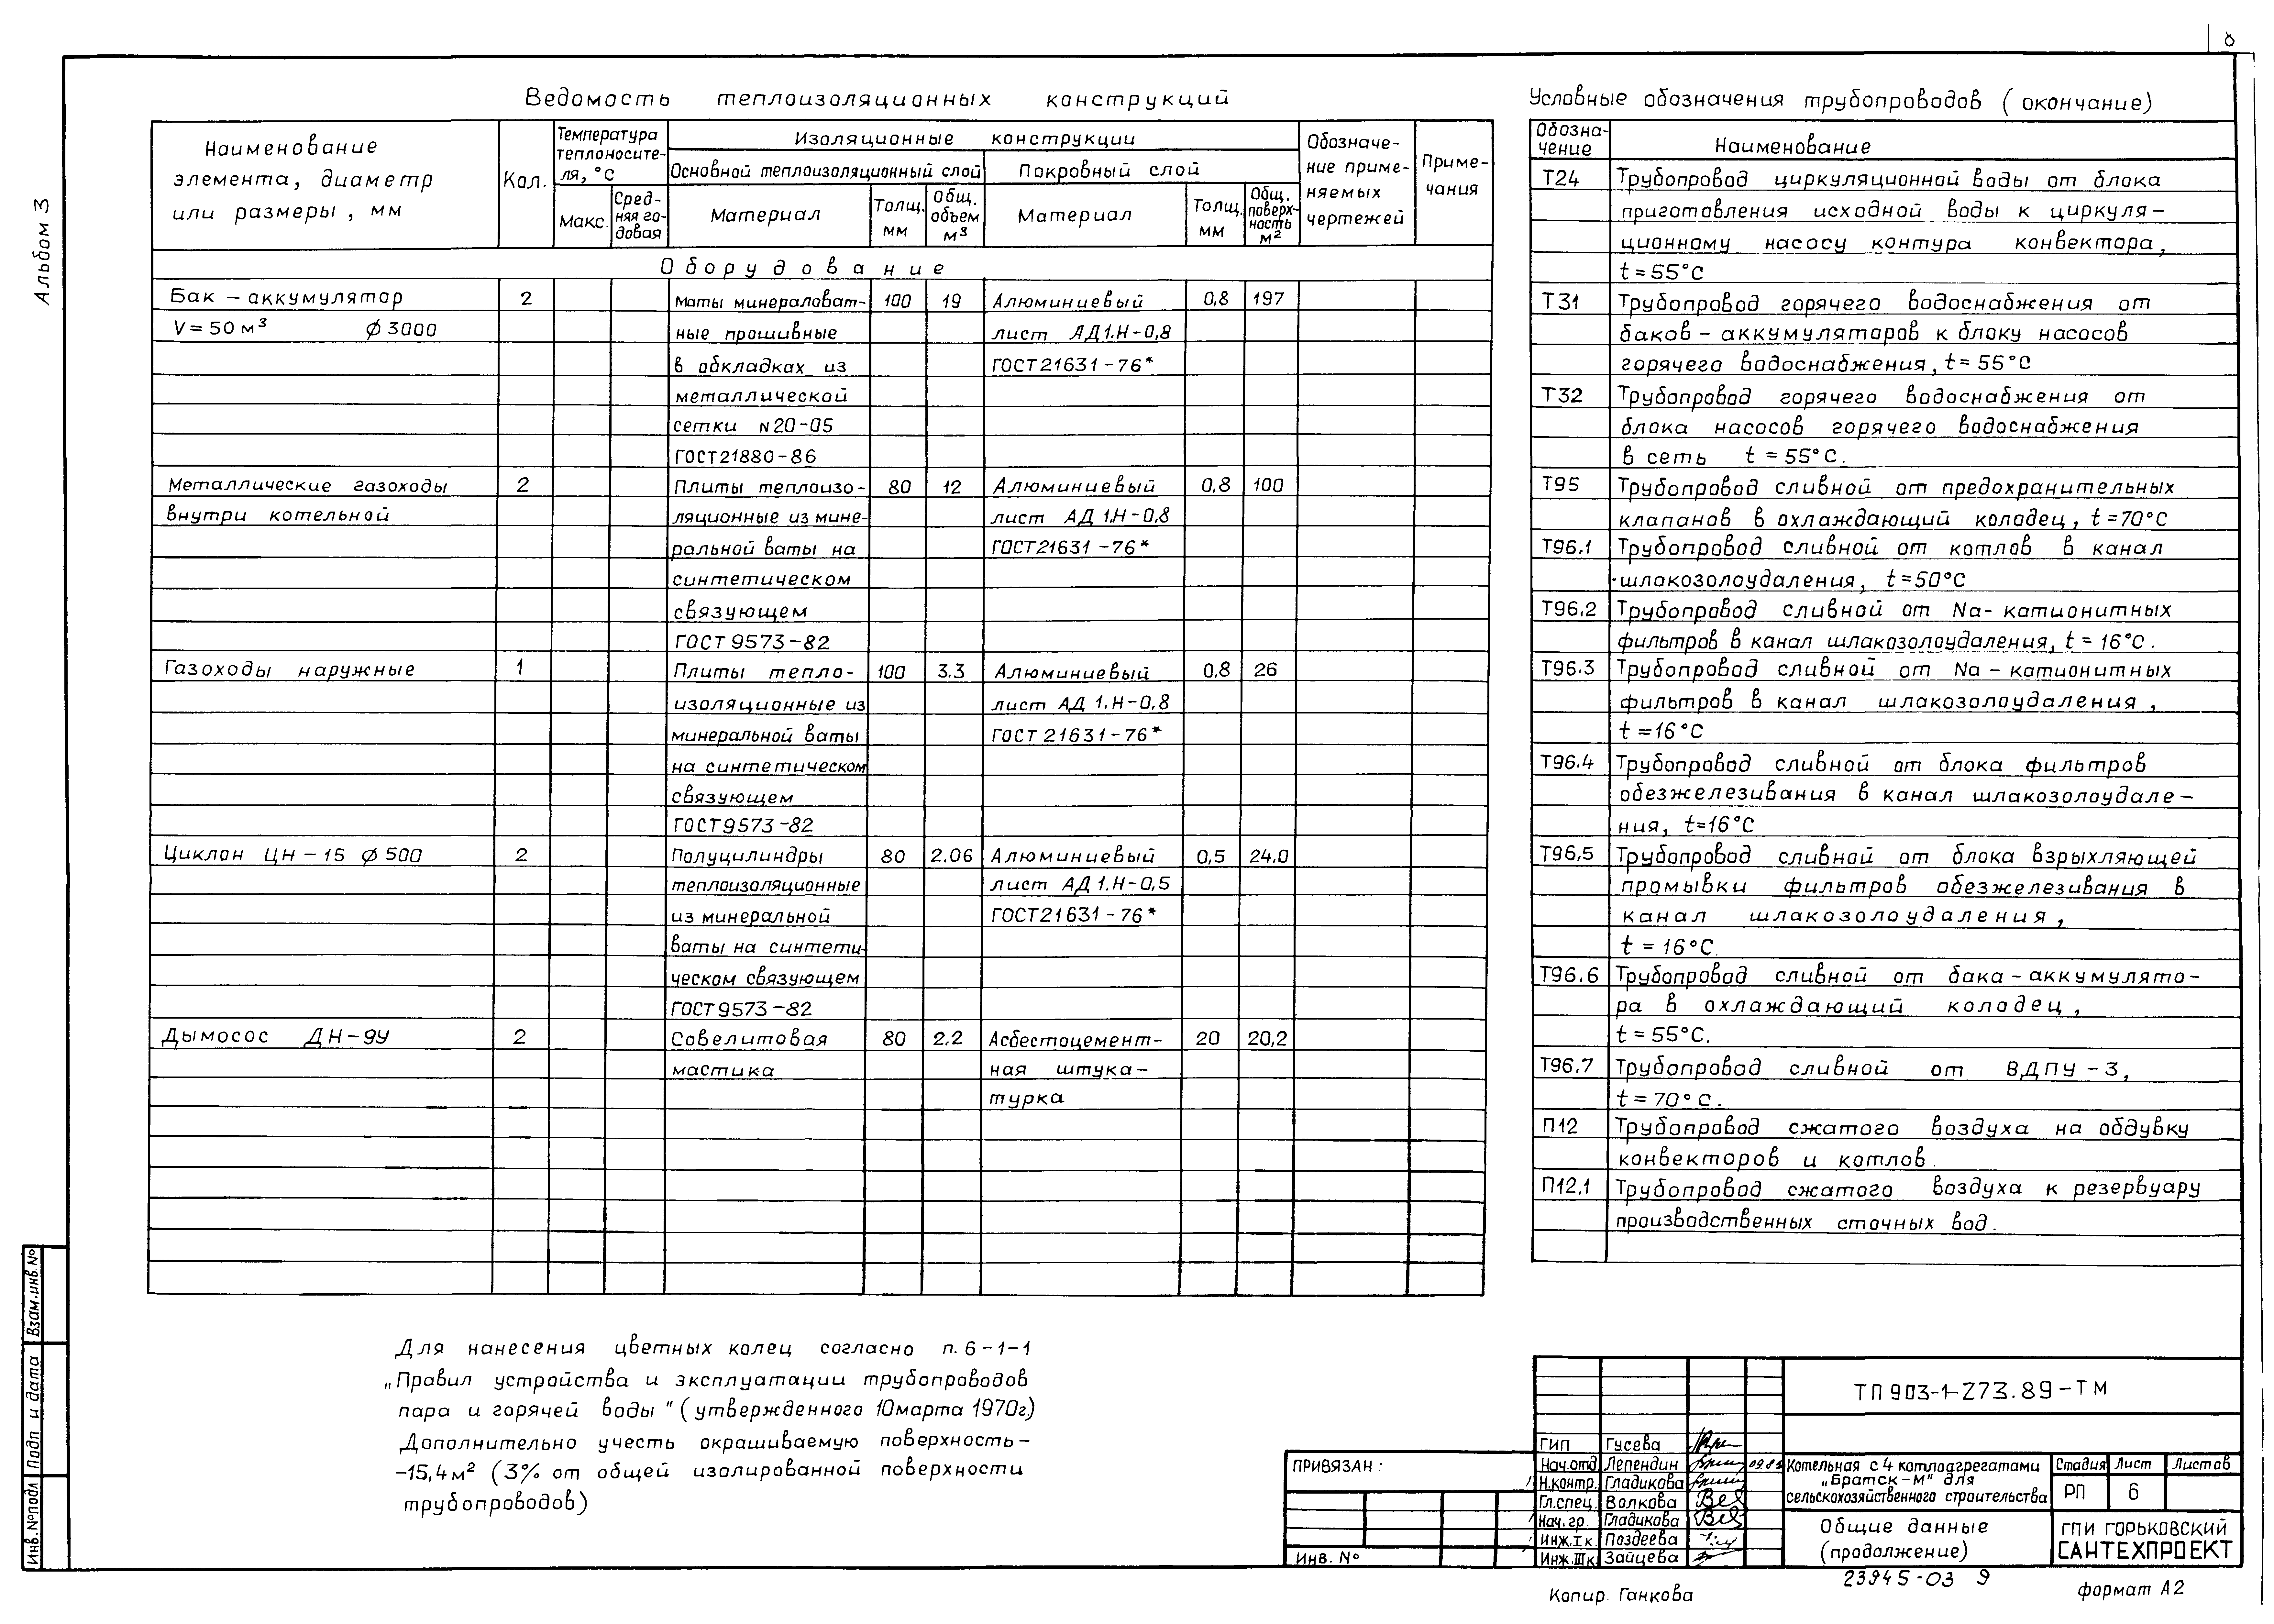 8
Альбом 3
Ведомость теплоизоляционных конструкций
Наименование элемента, диаметр или размеры, мм
Кол.
Температура теплоносителя, °С
Макс.
Средняя годовая
Изоляционные конструкции
Основной теплоизоляционный слой
Покровный слой
Материал
Толщ. мм
Общ. объем м³
Материал
Толщ. мм
Общ. поверхность м²
Обозначение применяемых чертежей
Примечания
Оборудование
Бак – аккумулятор 2 маты минераловат- 100 19 Алюминиевый 0,8 197
V = 50 м³ ϕ 3000 ные прошивные лист АД1.Н-0,8
в обкладках из ГОСТ 21631-76*
металлической
сетки N 20-05
ГОСТ 21880-86
Металлические газоходы 2 Плиты теплоизо- 80 12 Алюминиевый 0,8 100
внутри котельной ляционные из мине- лист АД 1.Н-0,8
ральной ваты на ГОСТ 21631-76*
синтетическом
связующем
ГОСТ 9573-82
Газоходы наружные 1 Плиты тепло- 100 3.3 Алюминиевый 0,8 26
изоляционные из лист АД 1.Н-0,8
минеральной ваты ГОСТ 21631-76*
на синтетическом
связующем
ГОСТ 9573-82
Циклон ЦН-15 ϕ 500 2 Полуцилиндры 80 2.06 Алюминиевый 0,5 24.0
теплоизоляционные лист АД 1.Н-0,5
из минеральной ГОСТ 21631-76*
ваты на синтети-
ческом связующем
ГОСТ 9573-82
Дымосос ДН-9У 2 Совелитовая 80 2.2 Асбестоцемент- 20 20,2
мастика ная штука-
турка
Условные обозначения трубопроводов (окончание)
Обозна-
чение Наименование
Т24 Трубопровод циркуляционной воды от блока
приготовления исходной воды к циркуля-
ционному насосу контура конвектора,
t = 55°С
Т31 Трубопровод горячего водоснабжения от
баков-аккумуляторов к блоку насосов
горячего водоснабжения, t = 55°С
Т32 Трубопровод горячего водоснабжения от
блока насосов горячего водоснабжения
в сеть t = 55°С.
Т95 Трубопровод сливной от предохранительных
клапанов в охлаждающий колодец, t = 70°С
Т96.1 Трубопровод сливной от котлов в канал
шлакозолоудаления, t = 50°С
Т96.2 Трубопровод сливной от Na-катионитных
фильтров в канал шлакозолоудаления, t = 16°С.
Т96.3 Трубопровод сливной от Na-катионитных
фильтров в канал шлакозолоудаления,
t = 16°С
Т96.4 Трубопровод сливной от блока фильтров
обезжелезивания в канал шлакозолоудале-
ния, t=16°С
Т96,5 Трубопровод сливной от блока взрыхляющей
промывки фильтров обезжелезивания в
канал шлакозолоудаления,
t = 16°С.
Т96.6 Трубопровод сливной от бака-аккумулято-
ра в охлаждающий колодец,
t = 55°С.
Т96.7 Трубопровод сливной от ВДПУ-3,
t = 70°С.
П12 Трубопровод сжатого воздуха на обдувку
конвекторов и котлов.
П12,1 Трубопровод сжатого воздуха к резервуару
производственных сточных вод.
Для нанесения цветных колец согласно п. 6-1-1
„Правил устройства и эксплуатации трубопроводов
пара и горячей воды" (утвержденного 10 марта 1970г.)
Дополнительно учесть окрашиваемую поверхность-
-15,4 м² (3% от общей изолированной поверхности
трубопроводов)
Взам. инв. №
Подп и дата
Инв. № подл
ПРИВЯЗАН:
Инв. №
ГИП Гусева
Нач.отд Лепендин 09.89
Н.контр. Гладикова
Гл.спец. Волкова
Нач. гр. Гладикова
Инж.Iк. Поздеева
Инж.IIIк. Зайцева
ТП 903-1-273.89-ТМ
Котельная с 4 котлоагрегатами
„Братск-М" для
сельскохозяйственного строительства
Стадия Лист Листов
РП 6
Общие данные
(продолжение)
ГПИ ГОРЬКОВСКИЙ
САНТЕХПРОЕКТ
23945-03 9
Копир. Ганкова
формат А2